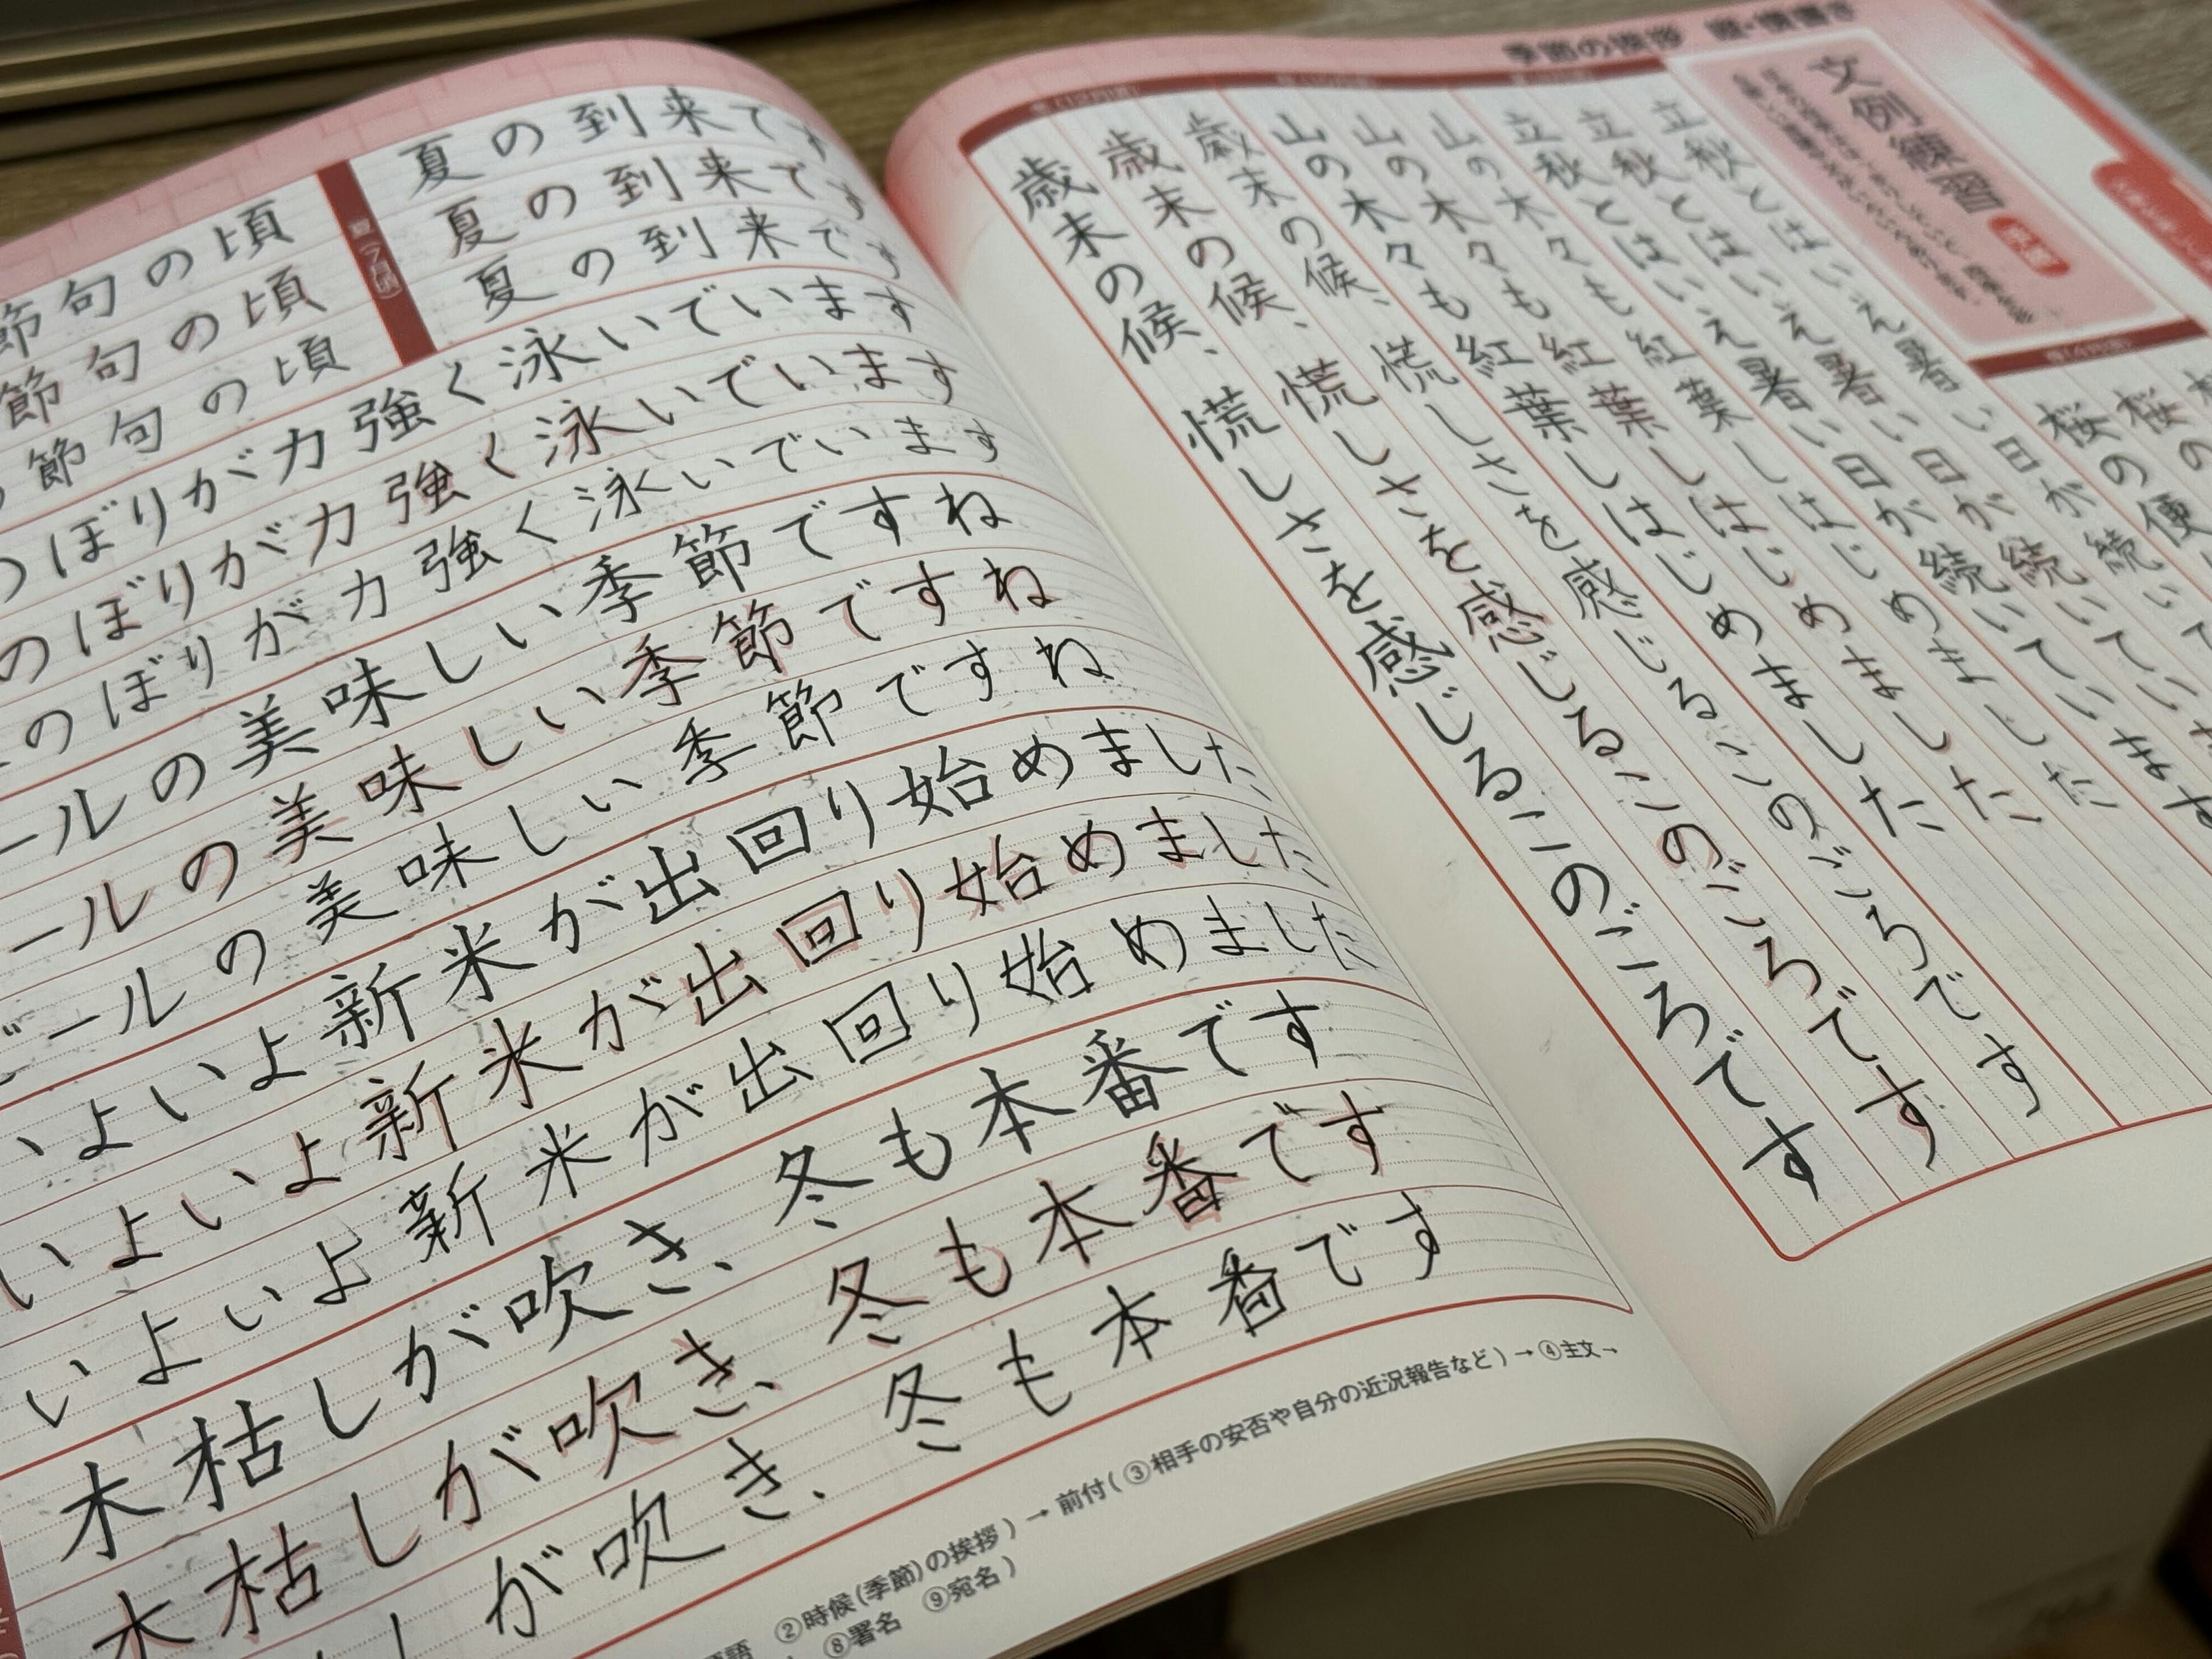 節句の頃
節句の頃
節句の頃
夏(7月頃)
夏の到来です
夏の到来です
夏の到来です
のぼりが力強く泳いでいます
のぼりが力強く泳いでいます
のぼりが力強く泳いでいます
ールの美味しい季節ですね
ールの美味しい季節ですね
ビールの美味しい季節ですね
いよいよ新米が出回り始めました
いよいよ新米が出回り始めました
いよいよ新米が出回り始めました
木枯しが吹き、冬も本番です
木枯しが吹き、冬も本番です
が吹き、冬も本番です
②時候(季節)の挨拶)→前付(③相手の安否や自分の近況報告など)→④主文→
⑧署名 ⑨宛名)
季節の挨拶 縦・横書き
文例練習
桜の
桜の便
立秋とはいえ暑い日が続いて
立秋とはいえ暑い日が続いています
立秋とはいえ暑い日が続いています
山の木々も紅葉しはじめました
山の木々も紅葉しはじめました
山の木々も紅葉しはじめました
歳末の候、慌しさを感じるこのごろです
歳末の候、慌しさを感じるこのごろです
歳末の候、慌しさを感じるこのごろです